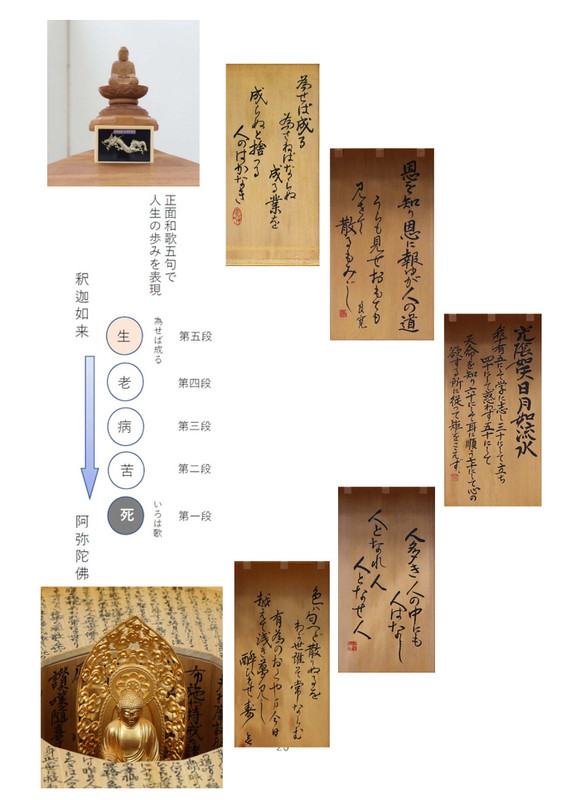 正面和歌五句で
人生の歩みを表現
釈迦如来
生
為せば成る
第五段
老
第四段
病
第三段
苦
第二段
死
いろは歌
第一段
阿弥陀佛
為せば成る
為さねばならぬ
成る業を
成らぬと捨つる
人のはかなき
恩を知り恩に報ゆが人の道
うらも見せおもても
見せて
散るもみじ
良寛
日月如流水
十有五にて学に志し三十にして立ち
四十にして惑わず五十にして
天命を知り六十にて耳に順う七十にして心の
欲する所に従って矩をこえず、
人多き人の中にも
人はなし
人となれ人
人となせ人
色は匂へど散りぬるを
わが世誰ぞ常ならむ
有為のおくやま今日
越えて浅き夢見し
酔ひもせず